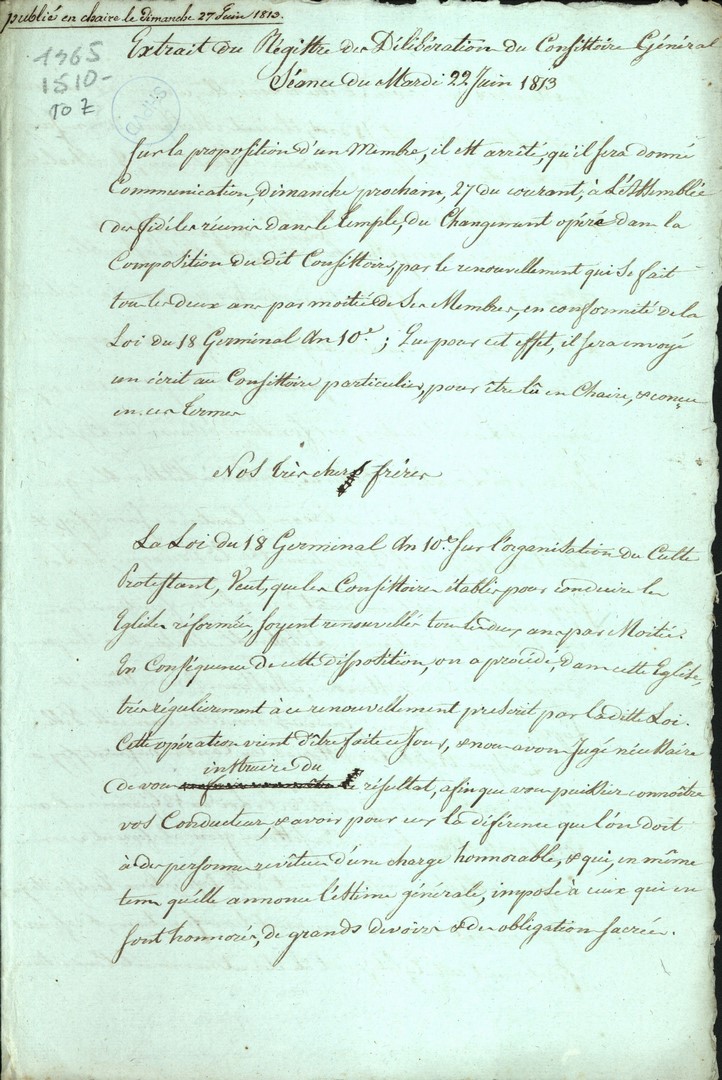 publié en chaire le dimanche 27 Juin 1813.
1965
1510-
107
SHPVD
Extrait du Régistre des Délibérations du Consistoire Général
Séance du Mardi 22 Juin 1813
Sur la proposition d'un Membre, il est arrêté, qu'il sera donné
Communication, dimanche prochain, 27 du courant, à l'Assemblée
des fidèles réunis dans le temple, du Changement opéré dans la
Composition du dit Consistoire, par le renouvellement qui se fait
tous les deux ans par moitié de ses Membres, en conformité de la
Loi du 18 Germinal An 10.e; Que pour cet effet, il sera envoyé
un écrit au Consistoire particulier, pour être lû en Chaire, & conçu
en ces termes
Nos très chers frères
La Loi du 18 Germinal An 10.e sur l'organisation du Culte
Protestant, Veut, que les Consistoires établis pour conduire les
Eglises réformées, soyent renouvellés tous les deux ans par Moitié.
En Conséquence de cette disposition, on a procédé, dans cette Eglise,
très régulièrement à ce renouvellement prescrit par la ditte Loi.
Cette opération vient d'être faite ce Jour, & nous avons Jugé nécessaire
instruire du
de vous résultat, afin que vous puissiez connoître
vos Conducteurs, & avoir pour eux la déférence que l'on doit
à des personnes revêtues d'une charge honnorable, & qui, en même
tems qu'elle annonce l'estime générale, impose à ceux qui en
sont honnorés, de grands devoirs & des obligations sacrées.